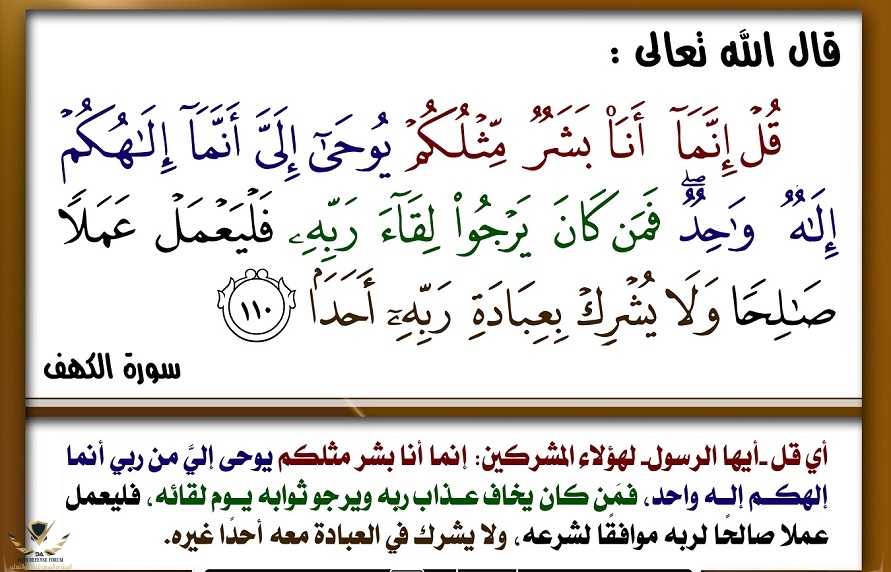 قال الله تعالى :
قُلْ إِنَّمَآ أَنَا۠ بَشَرٌ مِّثْلُكُمْ يُوحَىٰٓ إِلَىَّ أَنَّمَآ إِلَٰهُكُمْ
إِلَٰهٌ وَٰحِدٌ ۖ فَمَن كَانَ يَرْجُوا۟ لِقَآءَ رَبِّهِۦ فَلْيَعْمَلْ عَمَلًا
صَٰلِحًا وَلَا يُشْرِكْ بِعِبَادَةِ رَبِّهِۦٓ أَحَدَۢا ١١٠
سورة الكهف
أي قل ـ أيها الرسول ـ لهؤلاء المشركين: إنما أنا بشر مثلكم يوحى إليَّ من ربي أنما
إلهكم إله واحد، فمَن كان يخاف عذاب ربه ويرجو ثوابه يوم لقائه، فليعمل
عملا صالحًا لربه موافقًا لشرعه، ولا يشرك في العبادة معه أحدًا غيره.
DA
ARAB DEFENSE FORUM